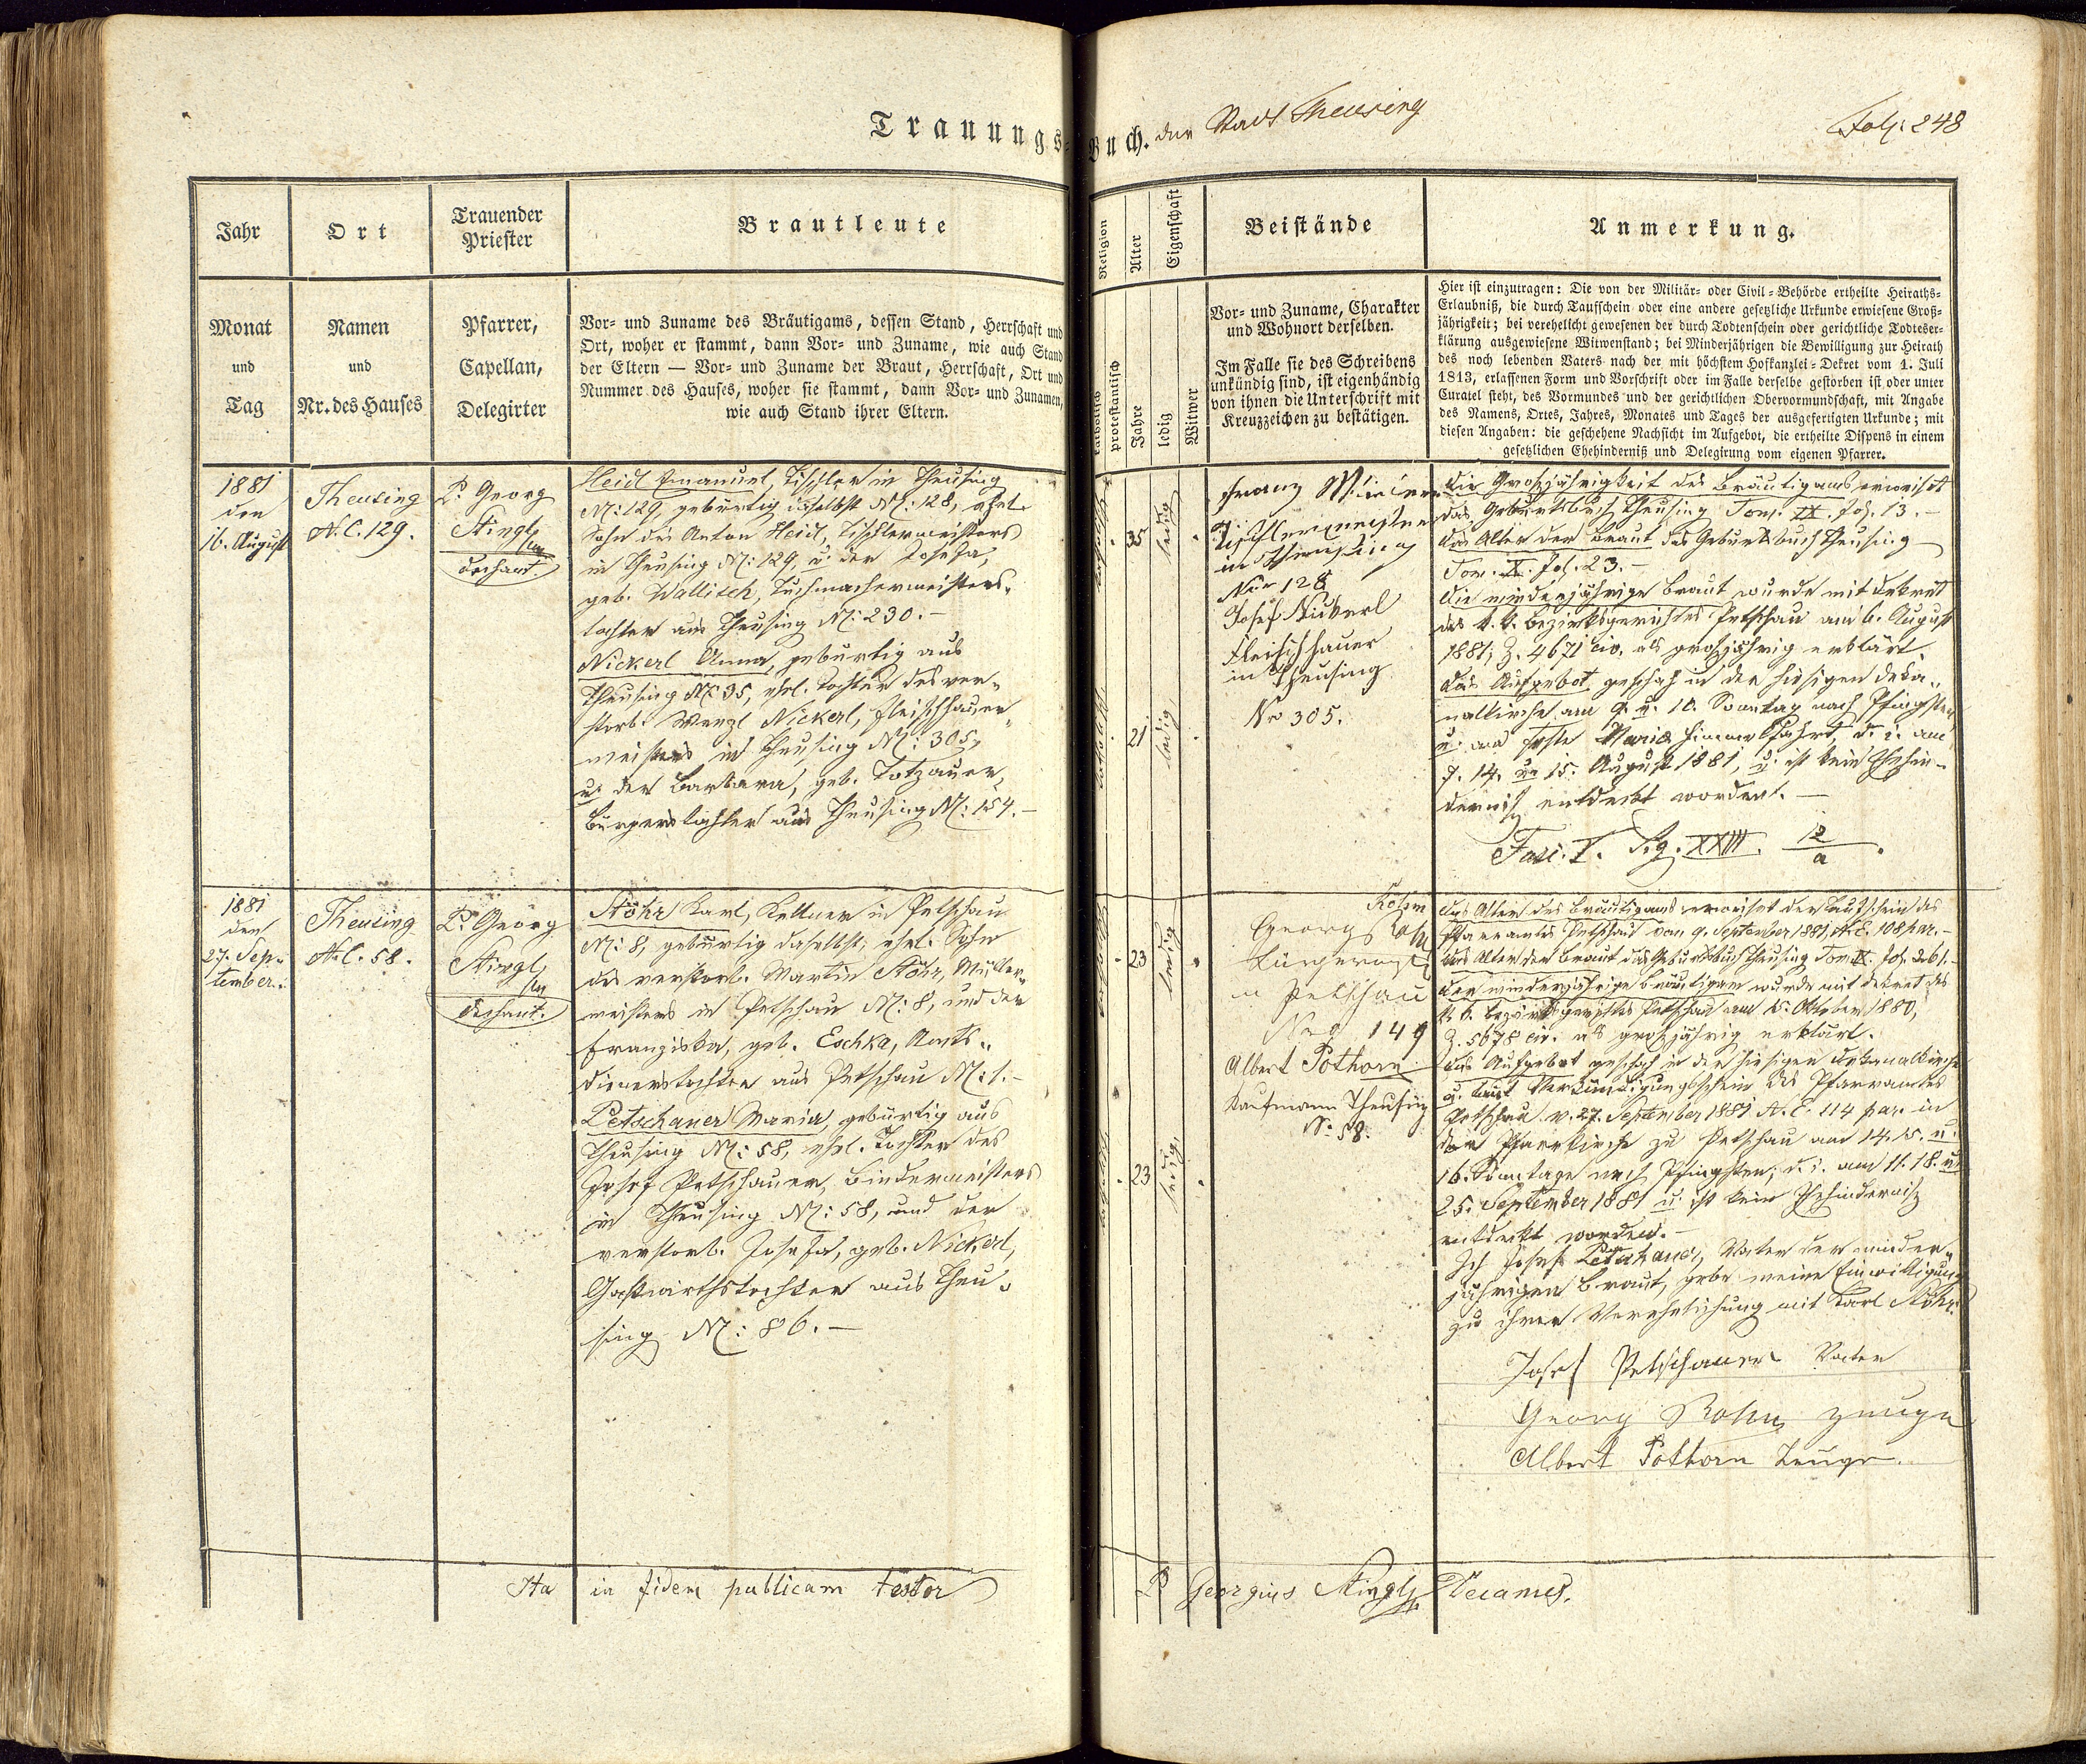 Trauungs-Buch. der Stadt Theusing
Fol. 248
Jahr
Ort
Trauender
Priester
Brautleute
Religion
Alter
Eigenschaft
Beistände
Anmerkung.
Monat
und
Tag
Namen
und
Nr. des Hauses
Pfarrer,
Capellan,
Delegirter
Vor- und Zuname des Bräutigams, dessen Stand, Herrschaft und
Ort, woher er stammt, dann Vor- und Zuname, wie auch Stand
der Eltern — Vor- und Zuname der Braut, Herrschaft, Ort und
Nummer des Hauses, woher sie stammt, dann Vor- und Zunamen,
wie auch Stand ihrer Eltern.
katholisch
protestantisch
Jahre
ledig
Witwer
Vor- und Zuname, Charakter
und Wohnort derselben.
Im Falle sie des Schreibens
unkündig sind, ist eigenhändig
von ihnen die Unterschrift mit
Kreuzzeichen zu bestätigen.
Hier ist einzutragen: Die von der Militär- oder Civil-Behörde ertheilte Heiraths-
Erlaubniß, die durch Taufschein oder eine andere gesetzliche Urkunde erwiesene Groß-
jährigkeit; bei verehelicht gewesenen der durch Todtenschein oder gerichtliche Todteser-
klärung ausgewiesene Witwenstand; bei Minderjährigen die Bewilligung zur Heirath
des noch lebenden Vaters nach der mit höchstem Hofkanzlei-Dekret vom 1. Juli
1813, erlassenen Form und Vorschrift oder im Falle derselbe gestorben ist oder unter
Curatel steht, des Vormundes und der gerichtlichen Obervormundschaft, mit Angabe
des Namens, Ortes, Jahres, Monates und Tages der ausgefertigten Urkunde; mit
diesen Angaben: die geschehene Nachsicht im Aufgebot, die ertheilte Dispens in einem
gesetzlichen Ehehinderniß und Delegirung vom eigenen Pfarrer.
1881
den
16. August
Theusing
N.C. 129.
P. Georg
Stingl
Dechant.
Heidl Emanuel, Tischler in Theusing
N: 129, gebürtig daselbst N: 128, ehel.
Sohn des Anton Heidl, Tischlermeisters
in Theusing N: 129, u. der Josefa,
geb. Wallisch, Tuchmachermeisters-
tochter aus Theusing N: 230.-
Nickerl Anna, gebürtig aus
Theusing N: 35, ehel. Tochter des ver-
storb. Wenzl Nickerl, Fleischhauer-
meisters in Theusing N: 305,
u. der Barbara, geb. Totzauer,
Bürgerstochter aus Theusing N: 154.-
katholisch
35
ledig
katholisch
21
ledig
Franz
Tischlermeister
in Theusing
Nro 128
Josef Nickerl
Fleischhauer
in Theusing
Nro 305.
Die Großjährigkeit des Bräutigams erweiset
das Geburtsbuch Theusing Tom. IX. fol. 13.-
Das Alter der Braut das Geburtsbuch Theusing
Tom. X. fol. 23.-
Die minderjährige Braut wurde mit Dekret
des k. k. Bezirksgerichtes Petschau am 6. August
1881, Z. 4671 civ. als großjährig erklärt.
Das Aufgebot geschah in der hiesigen Deka-
nalkirche am 9. u. 10. Sonntag nach Pfingsten
u. am Feste Mariä Himmelfahrt, d. i. am
7. 14. u. 15. August 1881, u. ist kein Ehehin-
derniß entdeckt worden.-
Fasc. V. Sig. XXIII. 12/a.
1881
den
27. Sep-
tember.
Theusing
N.C. 58.
P. Georg
Stingl
Dechant.
Stöhr Karl, Kellner in Petschau
N: 8, gebürtig daselbst, ehel. Sohn
des verstorb. Martin Stöhr, Müller-
meisters in Petschau N: 8, und der
Franziska, geb. Eschka, Amts-
dienerstochter aus Petschau N: 1.-
Petschauer Maria, gebürtig aus
Theusing N: 58, ehel. Tochter des
Josef Petschauer, Bindermeisters
in Theusing N: 58, und der
verstorb. Josefa, geb. Nickerl,
Gastwirthstochter aus Theu-
sing N: 86.-
katholisch
23
ledig
katholisch
23
ledig
Georg
in Petschau
Nro 149
Albert Pothorn
Kaufmann Theusing
No 58.
Das Alter des Bräutigams erweiset der Taufschein des
Pfarramtes Petschau von 9. September 1881, N.E. 108 par.-
Das Alter der Braut das Geburtsbuch Theusing Tom. IX. fol. 261.-
Der minderjährige Bräutigam wurde mit Dekret des
k. k. Bezirksgerichtes Petschau am 15. Oktober 1880,
Z. 5678 civ. als großjährig erklärt.
Das Aufgebot geschah in der hiesigen Dekanalkirche
u. laut Verkündigungsschein des Pfarramtes
Petschau v. 27. September 1881 N.E. 114 par. in
der Pfarrkirche zu Petschau am 14. 15. u.
16. Sonntage nach Pfingsten, d. i. am 11. 18. u.
25. September 1881 u. ist kein Ehehinderniß
entdeckt worden.-
Ich Josef Petschauer, Vater der minder-
jährigen Braut, gebe meine Einwilligung
zu ihrer Verehelichung mit Karl Stöhr.
Josef Petschauer Vater
Georg Zeuge
Albert Pothorn Zeuge.
Ita in fidem publicam testor P Georgius Stingl Decanus.